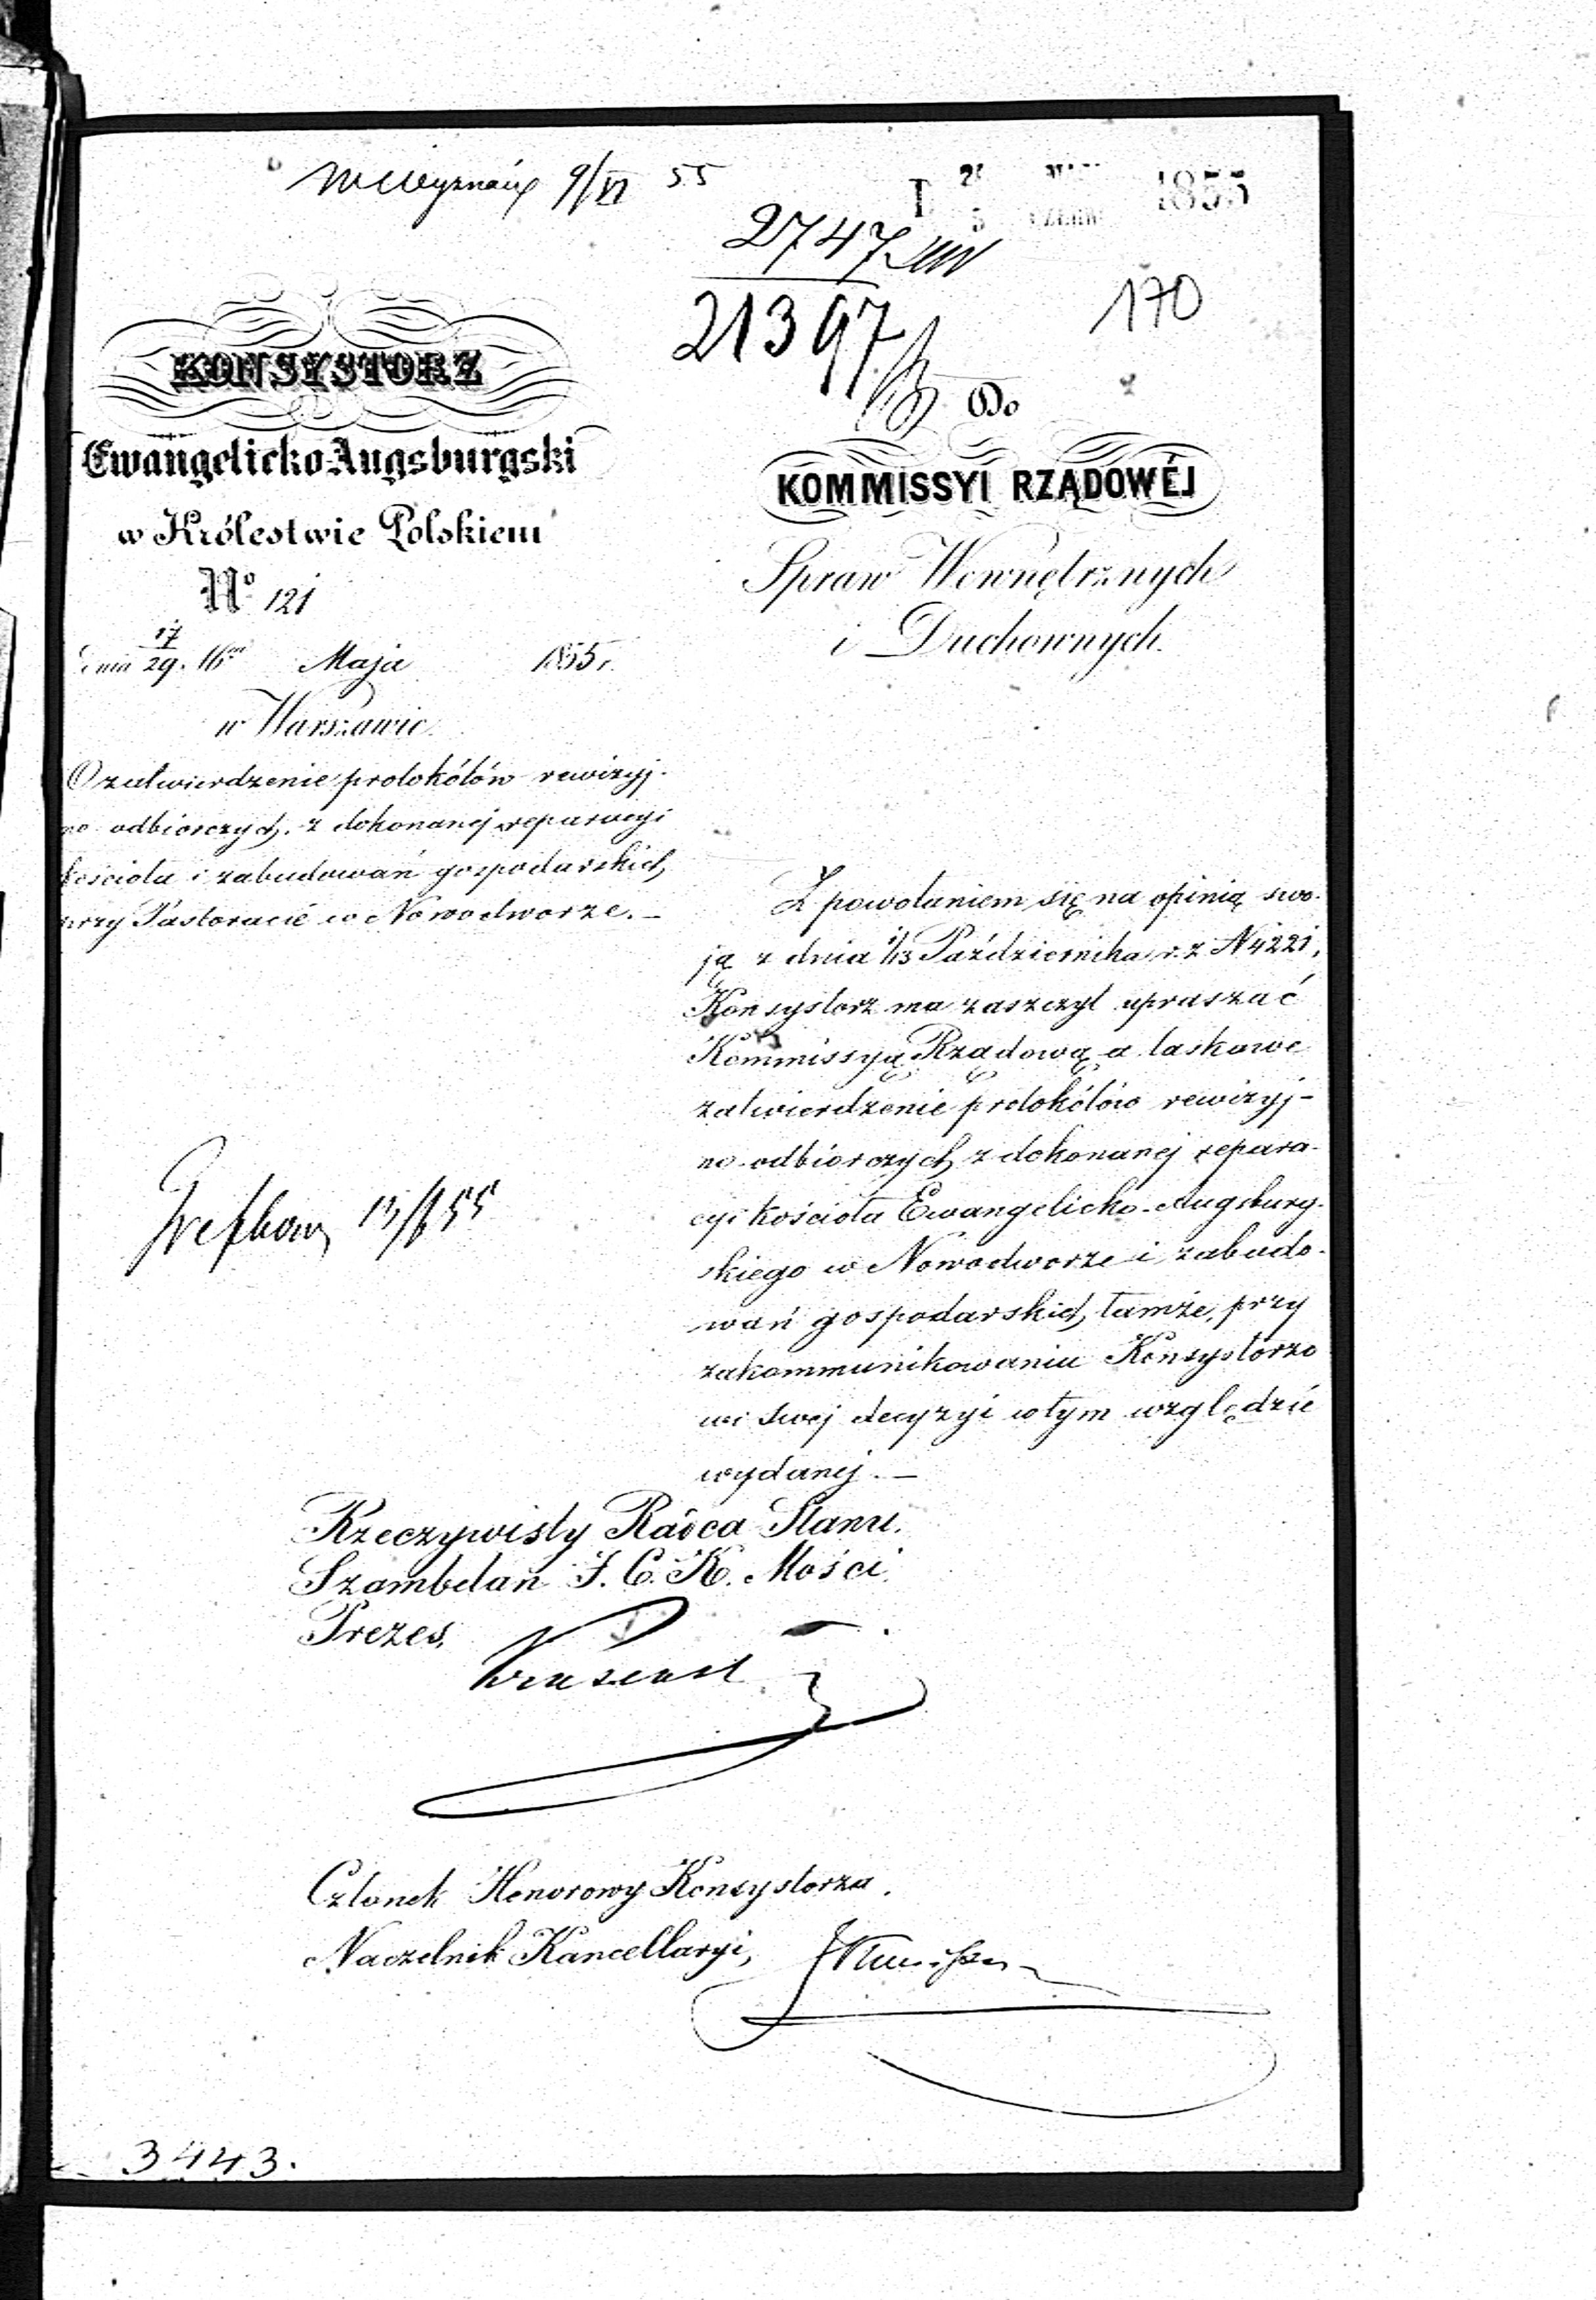 9/VI 55
1855
2747
21397
170
KONSYSTORZ
Ewangelicko-Augsburgski
w Królestwie Polskiem
No 121
dnia 17/29. Maja 1855 r.
w Warszawie.
O zatwierdzenie protokółów rewizyj-
no odbiorczych z dokonanej reparacyi
kościoła i zabudowań gospodarskich
przy Pastoracie w Nowodworze. _
Do
KOMMISSYI RZĄDOWÉJ
Spraw Wewnętrznych
i Duchownych.
Z powołaniem się na opinią swo-
ją z dnia 1/13 Października r. z N 4221,
Konsystorz ma zaszczyt upraszać
Kommissyą Rządową o łaskawe
zatwierdzenie protokółów rewizyj-
no-odbiorczych z dokonanej repara-
cyi kościoła Ewangelicko-Augsburg-
skiego w Nowodworze i zabudo-
wań gospodarskich tamże, przy
zakommunikowaniu Konsystorzo
wi swej decyzyi w tym względzie
wydanej. _
Rzeczywisty Radca Stanu,
Szambelan J. C. K. Mości.
Prezes,
Członek Honorowy Konsystorza.
Naczelnik Kancellaryi,
3443.